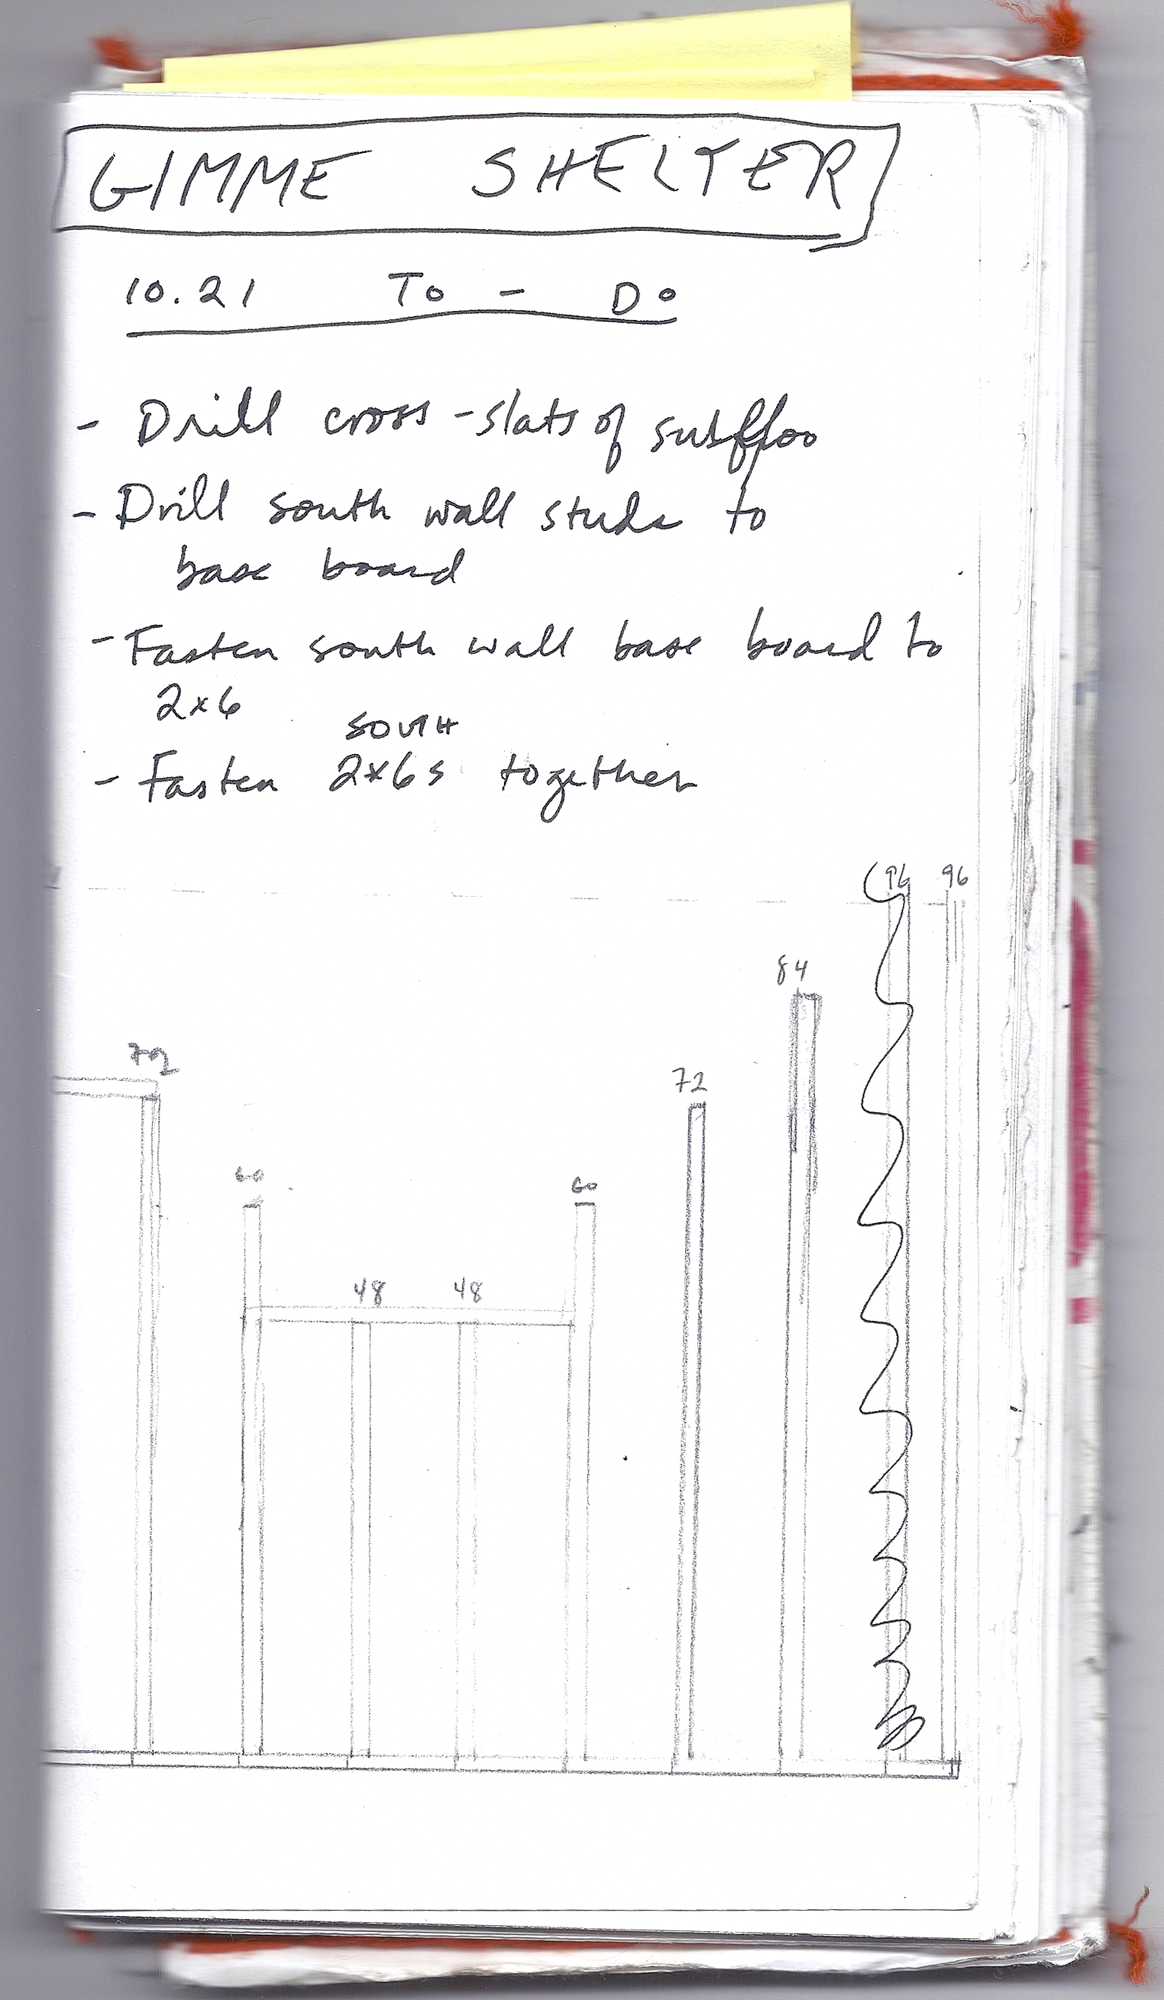 GIMME SHELTER
10.21 To - Do
- Drill cross-slats of subfloo
- Drill south wall studs to
base board
- Fasten south wall base board to
2x6
SOUTH
- Fasten 2x6s together
96 96
84
72 72
60 60
48 48